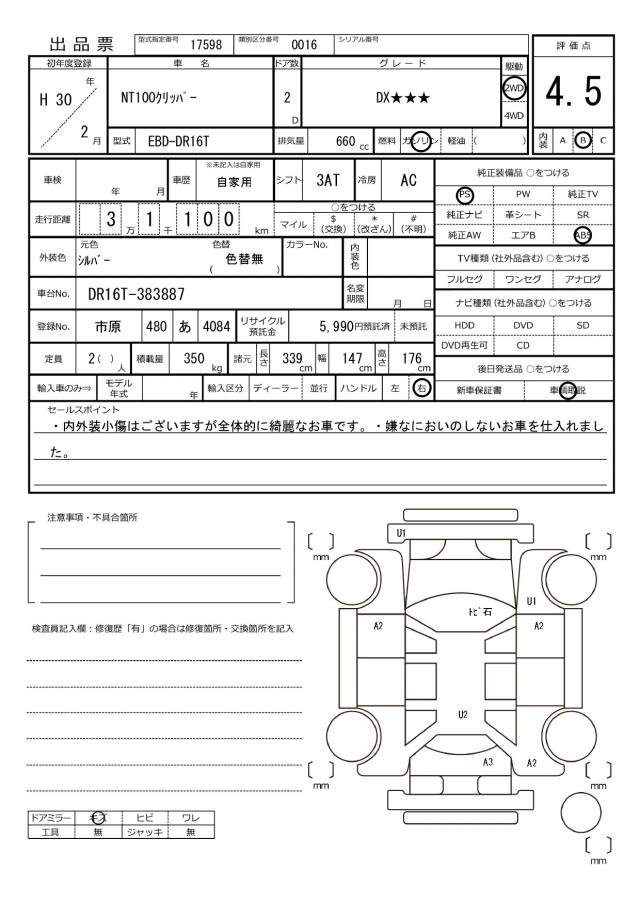 出品票 型式指定番号 17598 類別区分番号 0016 シリアル番号
評価点
4.5
内装 A B C
初年度登録 車名 ドア数 グレード 駆動
H 30 年 2 月
NT100ｸﾘｯﾊﾟｰ 2 D DX★★★ 2WD
4WD
型式 EBD-DR16T 排気量 660 cc 燃料 ガソリン 軽油 ( )
車検 年 月 車歴 ※未記入は自家用 自家用 シフト 3AT 冷房 AC
走行距離 3 万 1 千 1 0 0 km
○をつける
マイル $(交換) *(改ざん) #(不明)
外装色 元色 ｼﾙﾊﾞｰ 色替 ( 色替無 ) カラーNo. 内装色
車台No. DR16T-383887 名変期限 月 日
登録No. 市原 480 あ 4084 リサイクル預託金 5,990円預託済 未預託
定員 2( )人 積載量 350 kg 諸元 長さ 339 cm 幅 147 cm 高さ 176 cm
輸入車のみ⇒ モデル年式 年 輸入区分 ディーラー 並行 ハンドル 左 右
純正装備品 ○をつける
PS PW 純正TV
純正ナビ 革シート SR
純正AW エアB ABS
TV種類(社外品含む) ○をつける
フルセグ ワンセグ アナログ
ナビ種類(社外品含む) ○をつける
HDD DVD SD
DVD再生可 CD
後日発送品 ○をつける
新車保証書 車輌取説
セールスポイント
・内外装小傷はございますが全体的に綺麗なお車です。・嫌なにおいのしないお車を仕入れまし
た。
注意事項・不具合箇所
検査員記入欄：修復歴「有」の場合は修復箇所・交換箇所を記入
U1
mm
mm
ﾄﾋﾞ石
U1
A2
A2
U2
A3
A2
mm
mm
mm
ドアミラー キズ ヒビ ワレ
工具 無 ジャッキ 無